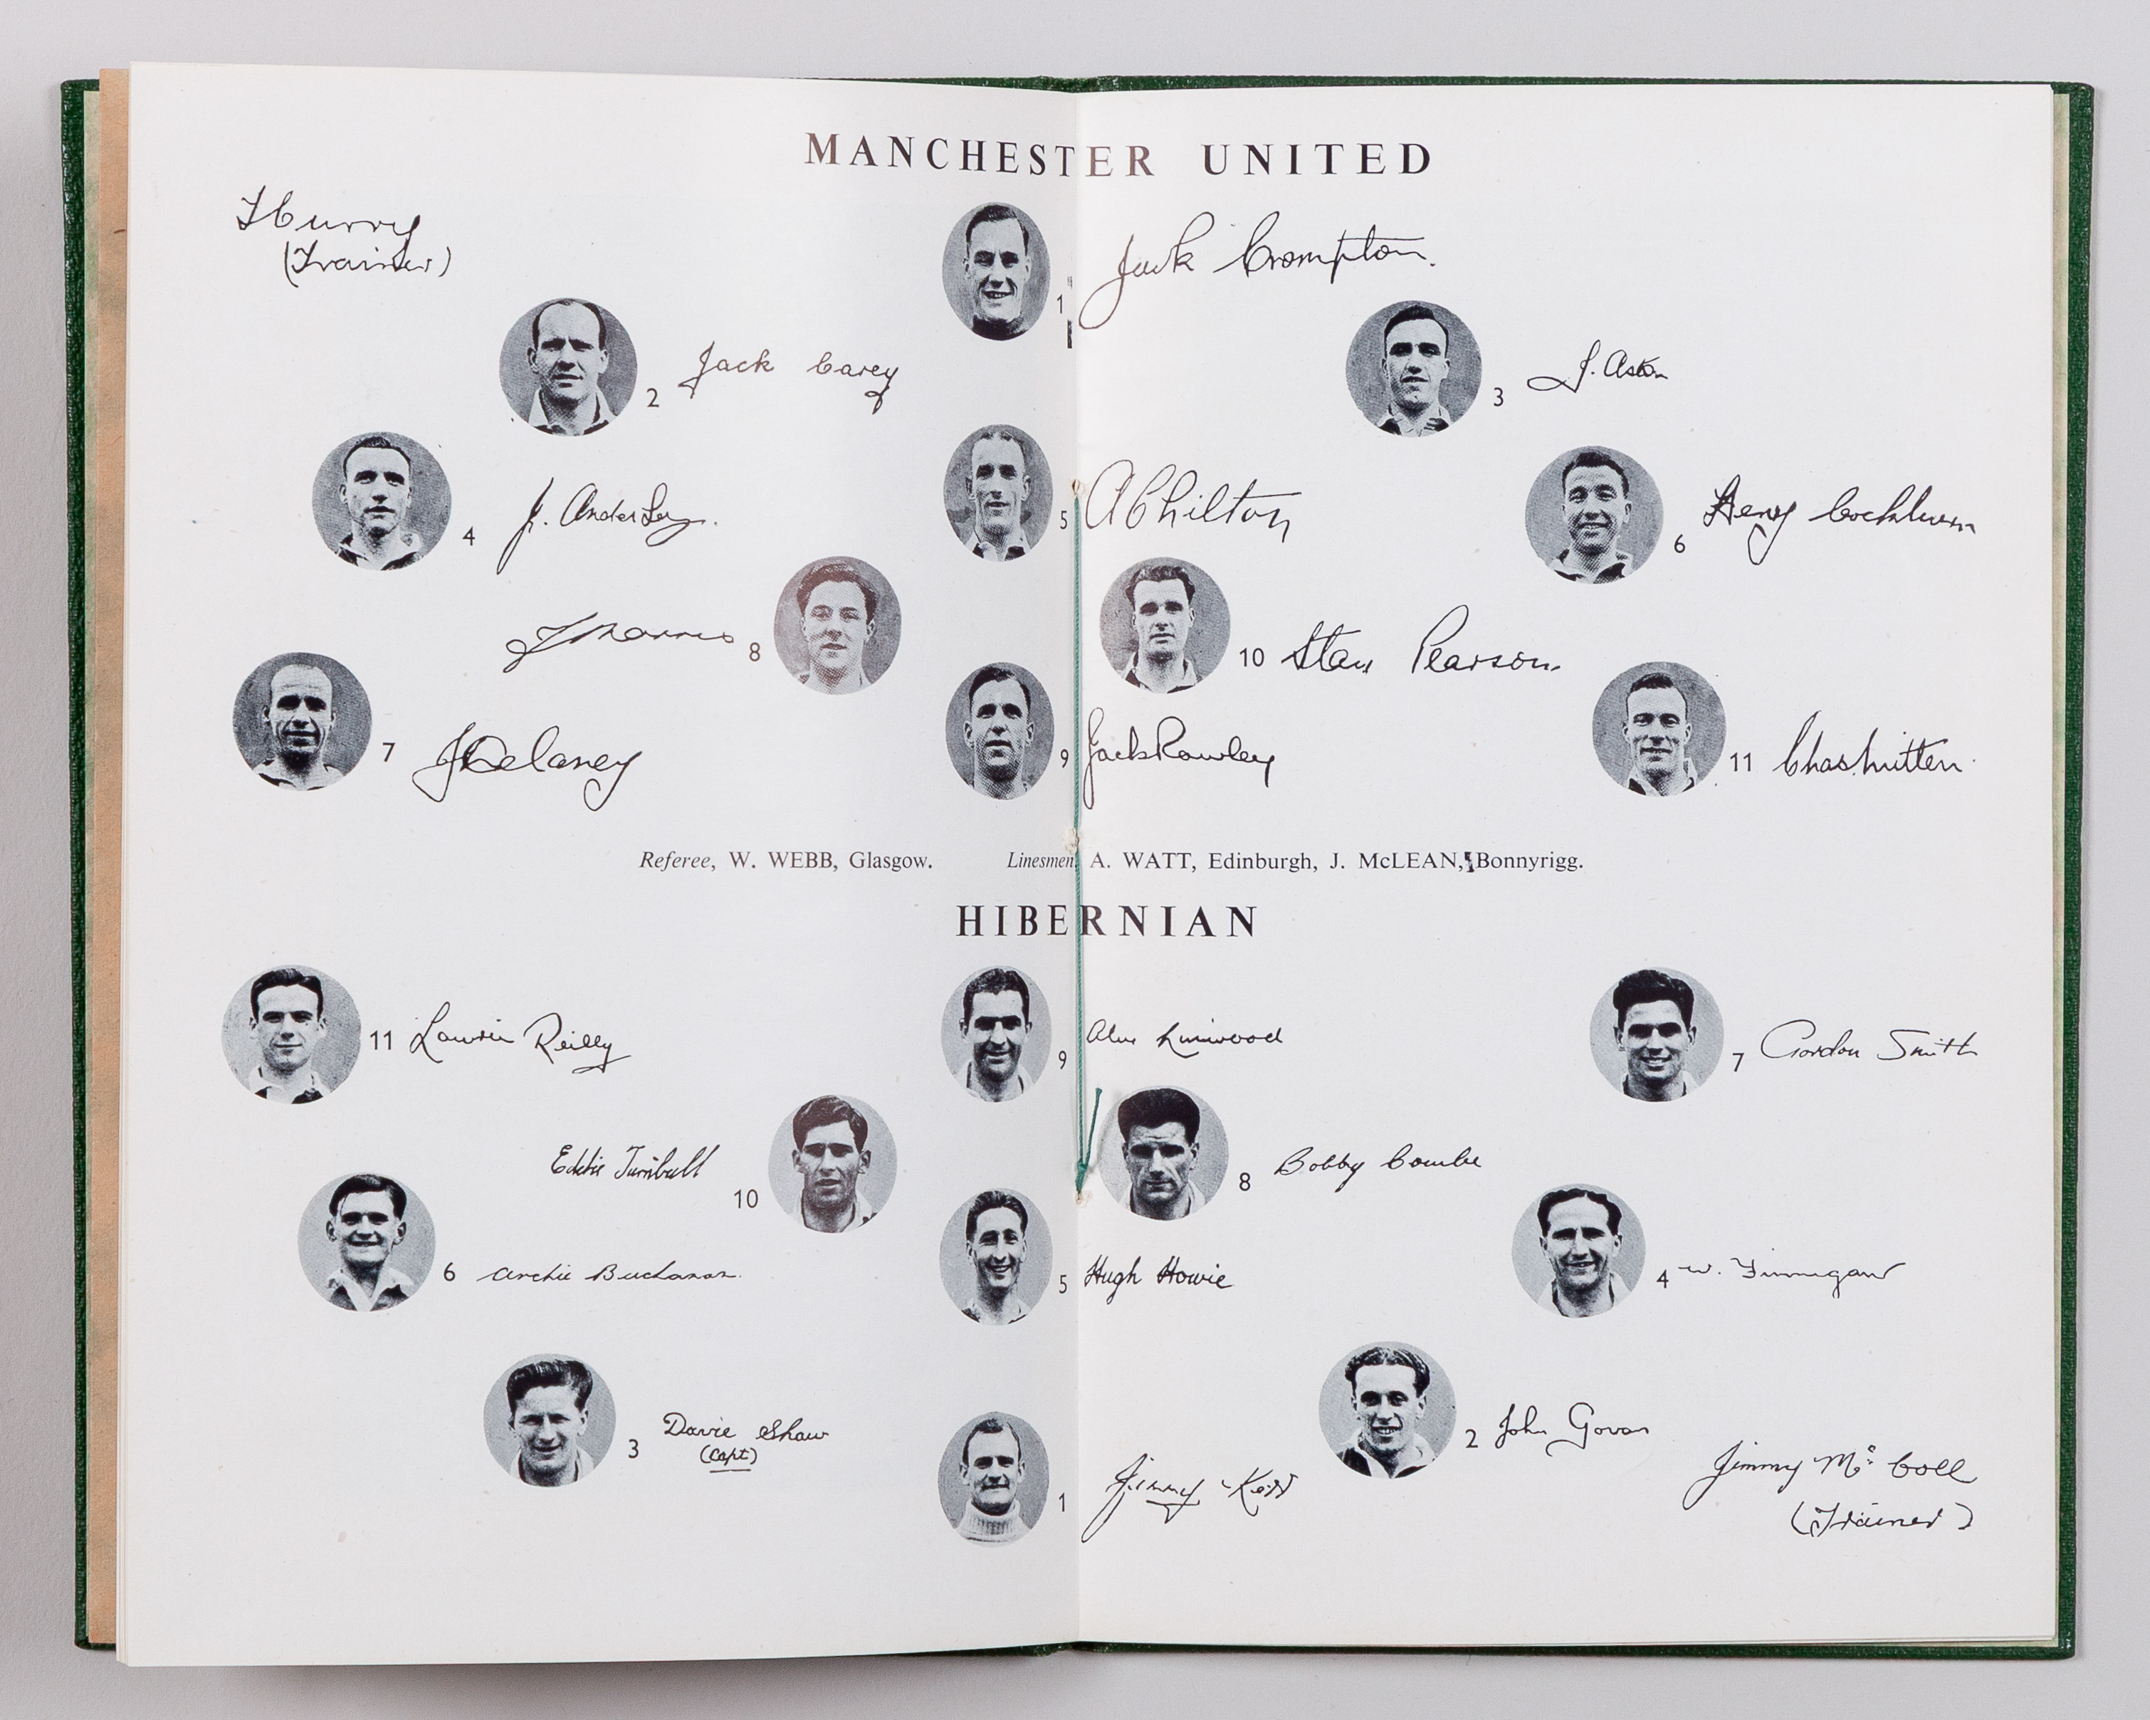 MANCHESTER UNITED
T Curry
(Trainer)
1 Jack Crompton.
2 Jack Carey
3 J. Aston
4 J. Anderson.
5 A Chilton
6 Henry Cockburn
8 J Morris
10 Stan Pearson
7 J Delaney
9 Jack Rowley
11 Chas Mitten
Referee, W. WEBB, Glasgow. Linesmen A. WATT, Edinburgh, J. McLEAN, Bonnyrigg.
HIBERNIAN
11 Lawrie Reilly
9 Alex Linwood
7 Gordon Smith
10 Eddie Turnbull
8 Bobby Combe
6 Archie Buchanan.
5 Hugh Howie
4 W. Finnigan
3 Davie Shaw
(Capt)
2 John Govan
1 Jimmy Kerr
Jimmy Mc Coll
(Trainer)